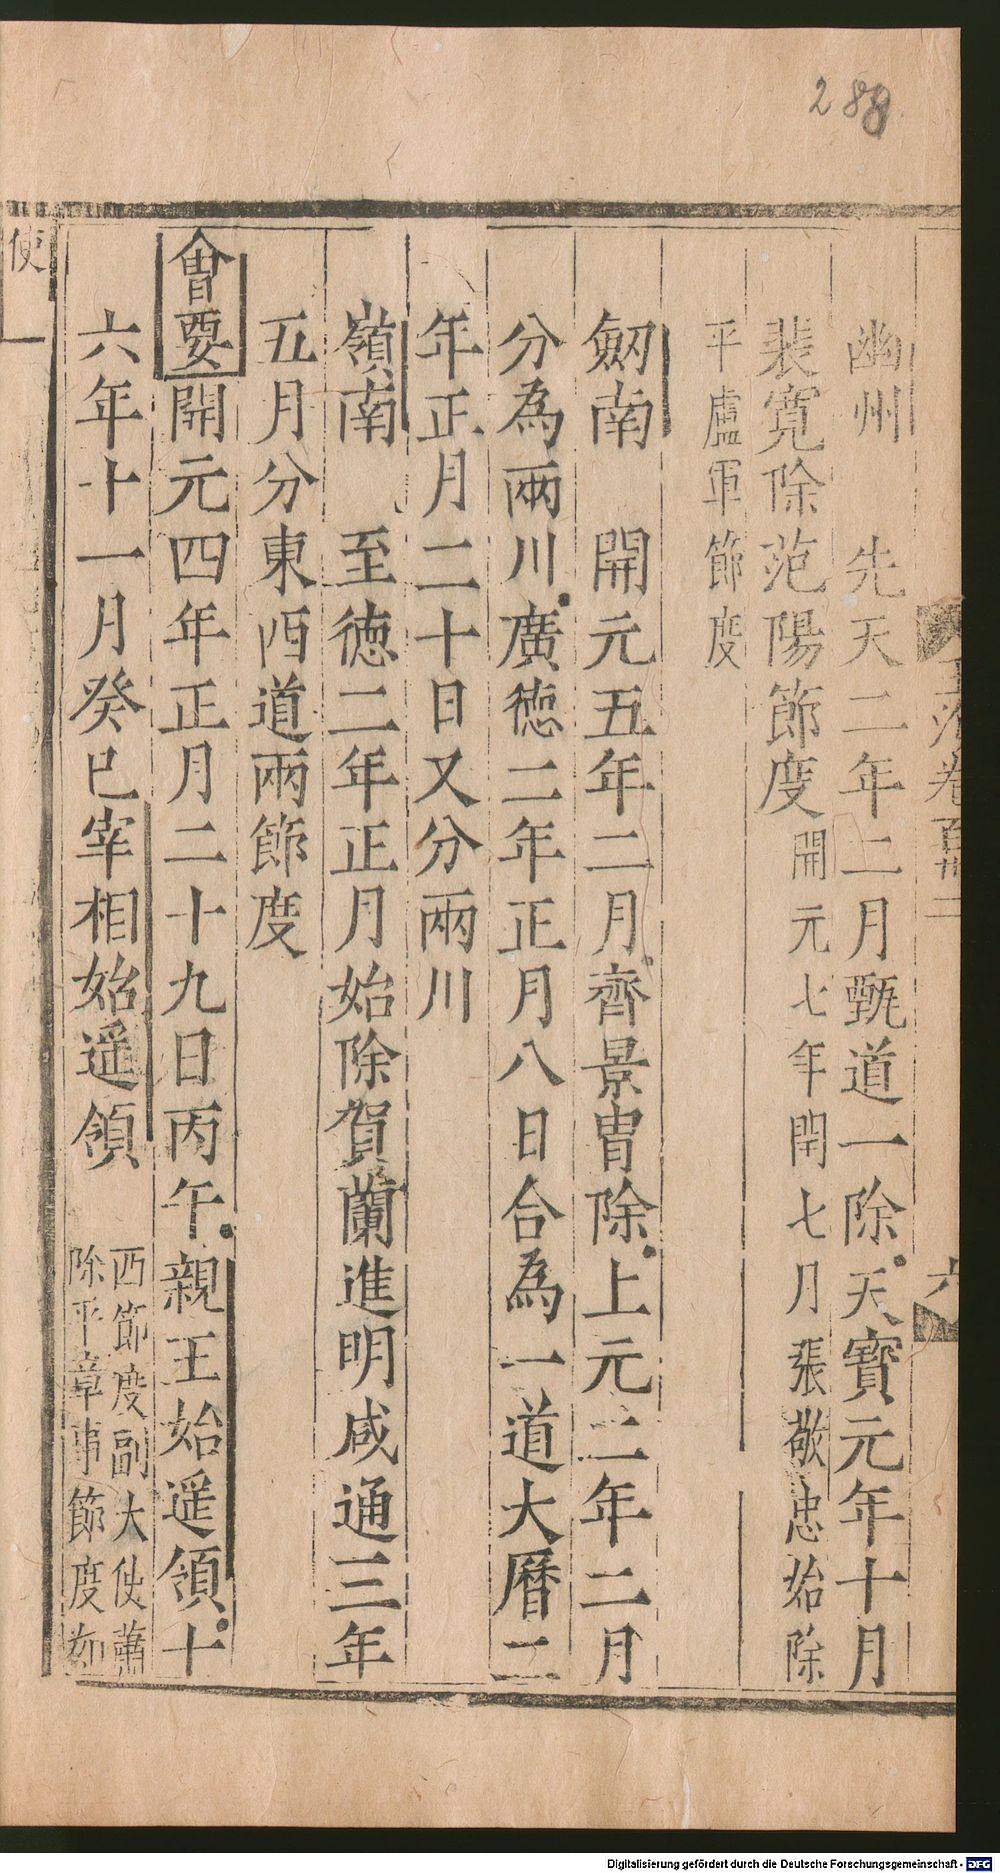 288
幽州　先天二年二月甄道一除天寳元年十月
裴寛除范陽節度開元七年閏七月張敬忠始除
平盧軍節度
劒南　開元五年二月齊景胄除上元二年二月
分為兩川廣徳二年正月八日合為一道大曆二
年正月二十日又分兩川
嶺南　至徳二年正月始除賀蘭進明咸通三年
五月分東西道兩節度
會要開元四年正月二十九日丙午親王始遥領十
六年十一月癸巳宰相始遥領西節度副大使蕭
除平章事節度如
使
卷百卅二
六
Digitalisierung gefördert durch die Deutsche Forschungsgemeinschaft - DFG